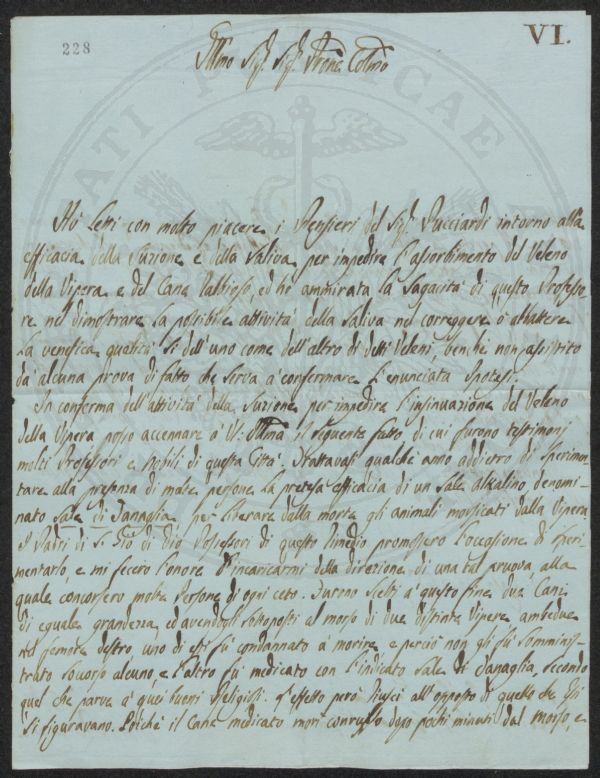 228
VI.
Illmo Sig. Sig. Prone Colmo
Hò letti con molto piacere i Pensieri del Sig. Pucciardi intorno all'
efficacia della Suzione e della Saliva per impedire l'assorbimento del Veleno
della Vipera e del Cane Rabbioso, ed hò ammirata la Sagacità di questo Professo-
re nel dimostrare la possibile attività della Saliva nel correggere ò abbattere
la venefica qualità sì dell'uno come dell'altro di detti Veleni, benchè non assistito
da alcuna prova di fatto che serva a confermare l'enunciata Ipotesi.
In conferma dell'attività della Suzione per impedire l'insinuazione del Veleno
della Vipera posso accennare à V. Illma il seguente fatto di cui furono testimonj
molti Professori e Nobili di questa Città. Trattavasi qualche anno addietro di sperimen-
tare alla presenza di molte persone la pretesa efficacia di un Sale alkalino denomi-
nato Sale di Tanaglia per liberare dalla morte gli animali morsicati dalla Vipera.
I Padri di S. Gio di Dio Possessori di questo Rimedio promossero l'occasione di speri-
mentarlo, e mi fecero l'onore d'incaricarmi della direzione di una tal pruova, alla
quale concorsero molte Persone di ogni ceto. Furono scelti a questo fine due Cani
di eguale grandezza, ed avendogli sottoposti al morso di due distinte Vipere ambedue
nel femore destro, uno di essi fù condannato à morire, e perciò non gli fù sommini-
trato soccorso alcuno, e l'altro fù medicato con l'indicato Sale di Tanaglia, secondo
quel che parve a quei buoni Religiosi. L'effetto però riuscì all'opposto di quello che
si figuravano. Poichè il Cane medicato morì convulso dopo pochi minuti dal morso, e